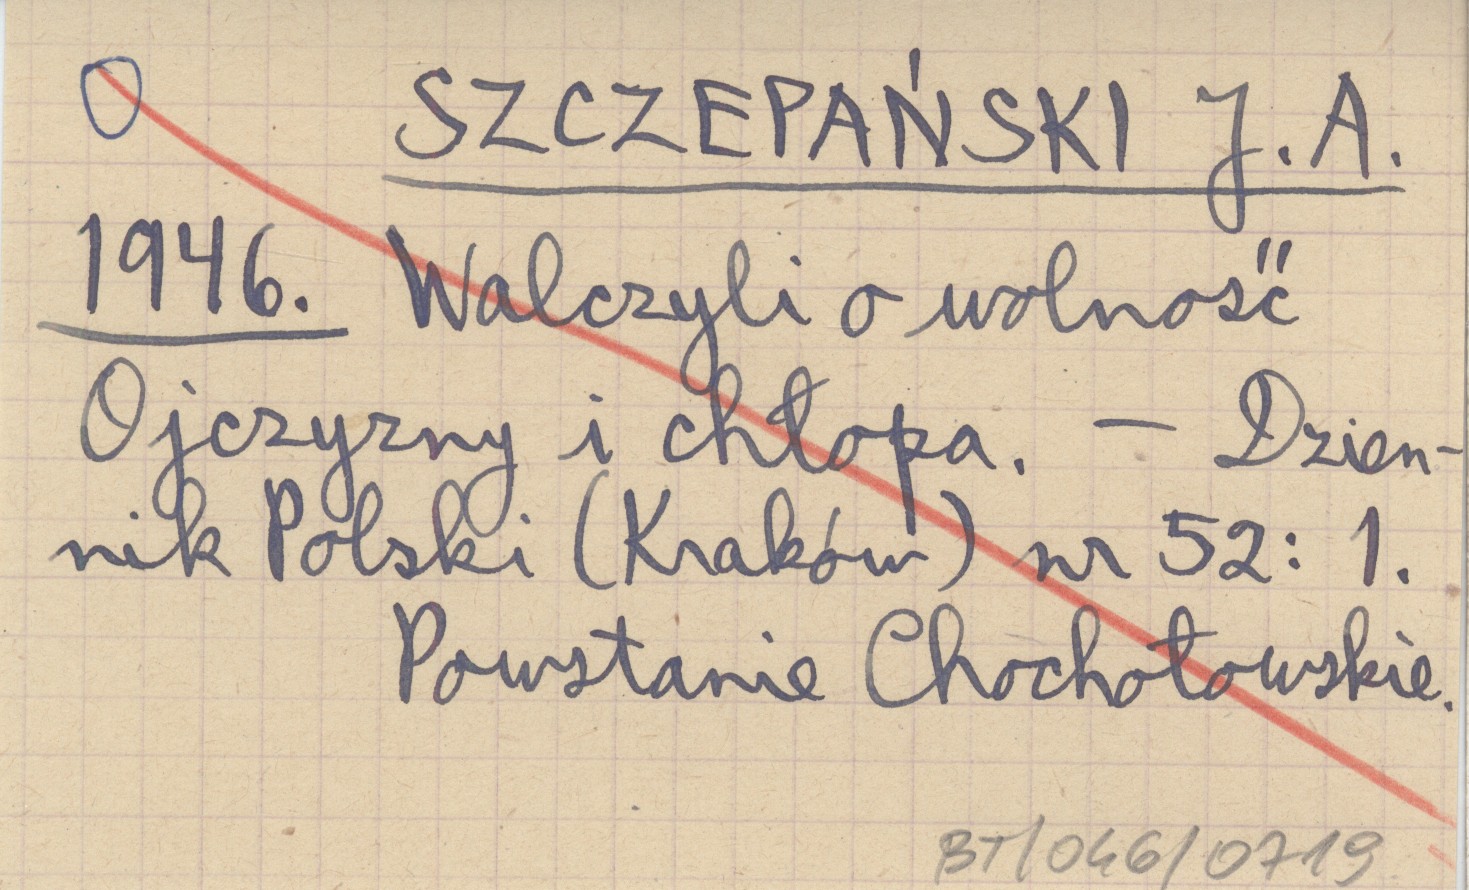 SZCZEPAŃSKI J. A.
1946. Walczyli o wolność
Ojczyzny i chłopa. — Dzien-
nik Polski (Kraków) nr 52: 1.
Powstanie Chochołowskie.
BT/046/0719